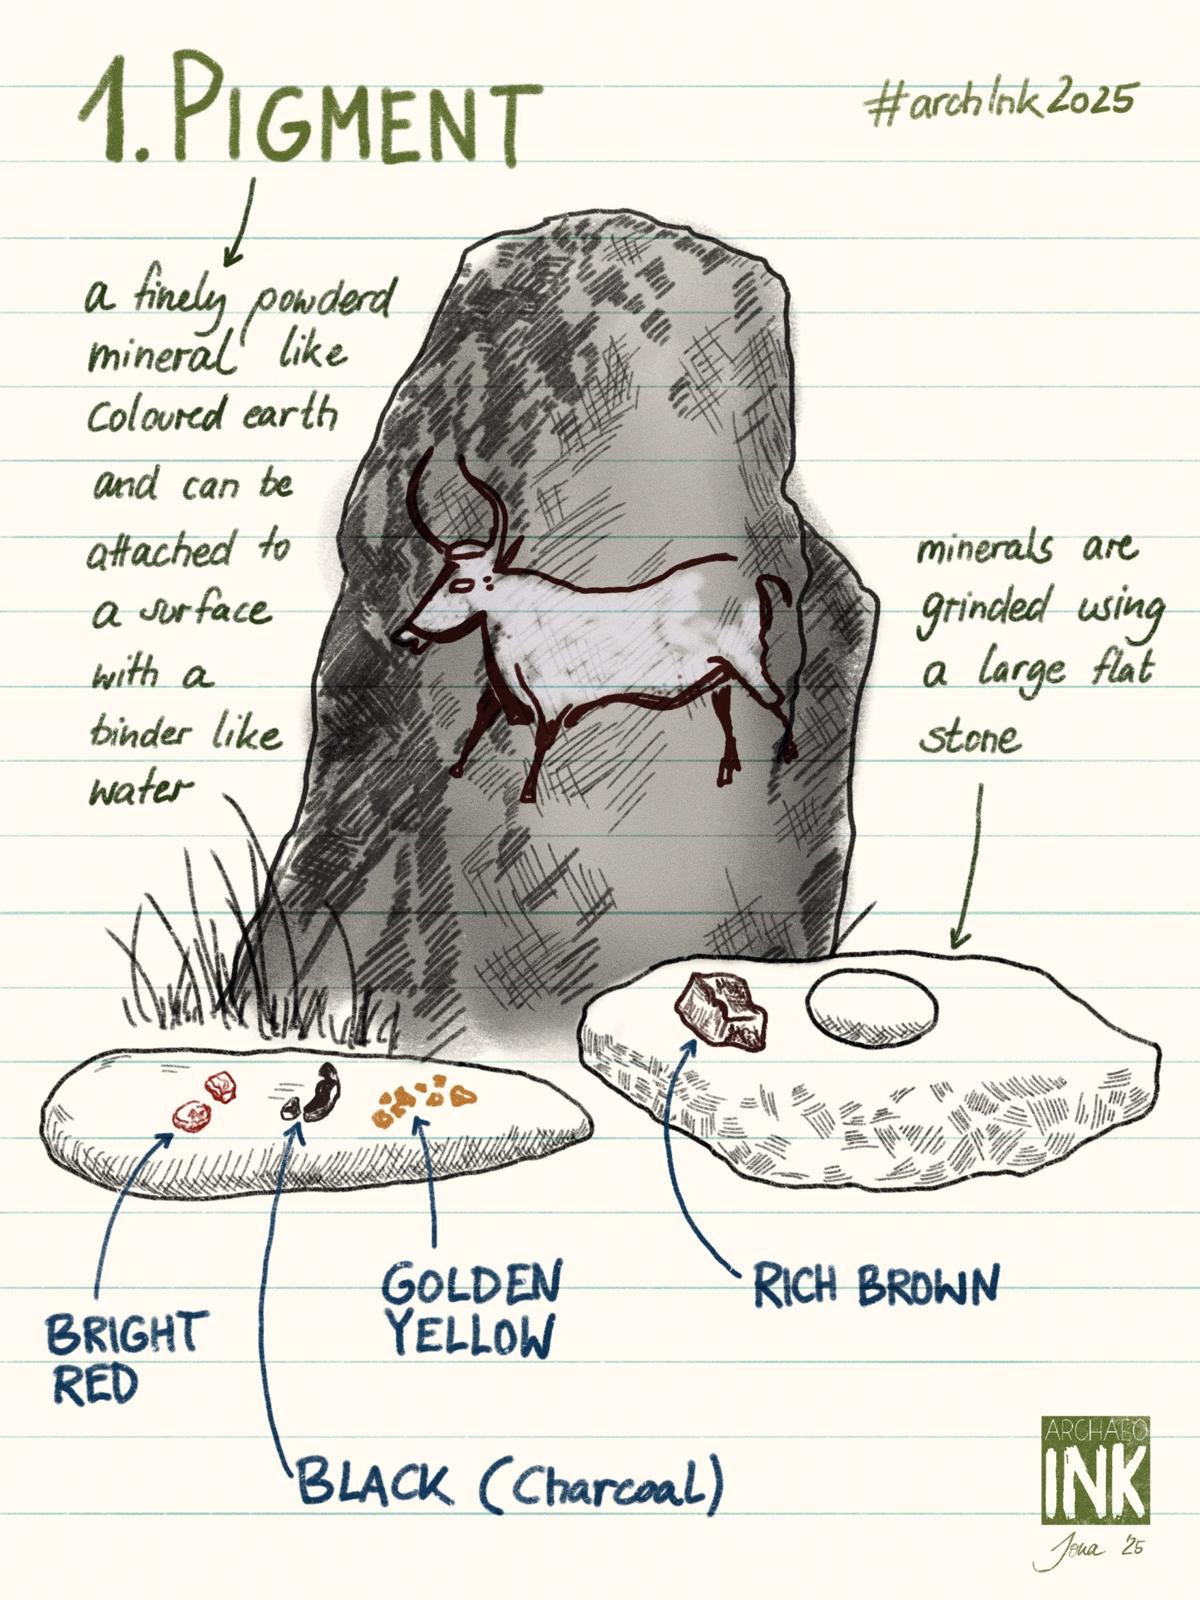 1. PIGMENT
#archInk2025
a finely powderd
mineral like
coloured earth
and can be
attached to
a surface
with a
binder like
water
minerals are
grinded using
a large flat
stone
BRIGHT
RED
BLACK (Charcoal)
GOLDEN
YELLOW
RICH BROWN
ARCHAEO
INK
Jona '25